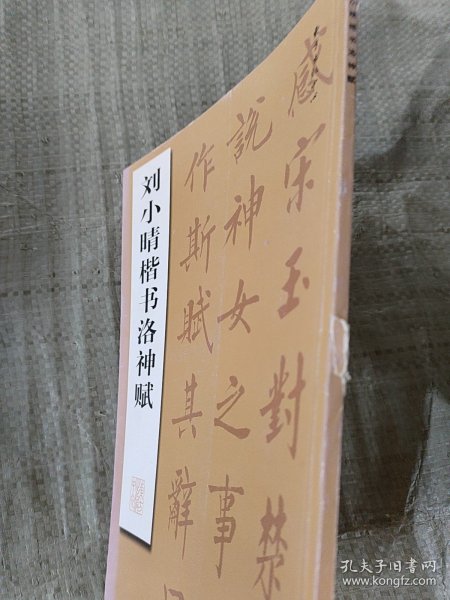 刘小晴楷书洛神赋
感宋玉對楚
說神女之事
作斯賦其辭
孔夫子旧书网
www.kongfz.com